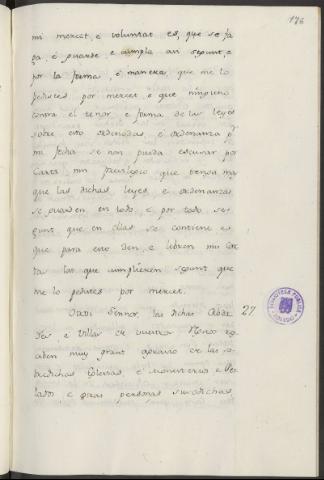 176
mi mercet, é voluntat es, que se fa
ga, é guarde e cumpla asi segunt, e
por la forma, é manera que me lo
pedistes por mercet e que ninguno
contra el tenor, e forma de las leyes
sobre esto ordenadas, é ordenanza pr
mi fecha se non pueda escusar por
Carta nin privilegio que tenga mas
que las dichas leyes, e ordenanzas
se guarden en todo, e por todo se-
gunt que en ellas se contiene e
que para esto den e libren mis Car
tas las que cumplieren segunt que
me lo pedistes por mercet.
Otrosi Sennor, las dichas Cibda
des e Villas de vuestros Regnos re
ciben muy grant agravio de las so
bredichas Eglesias, e Monesterios e Per
lados e otras personas susodichas,
27
BIBLIOTECA PUBLICA
TOLEDO